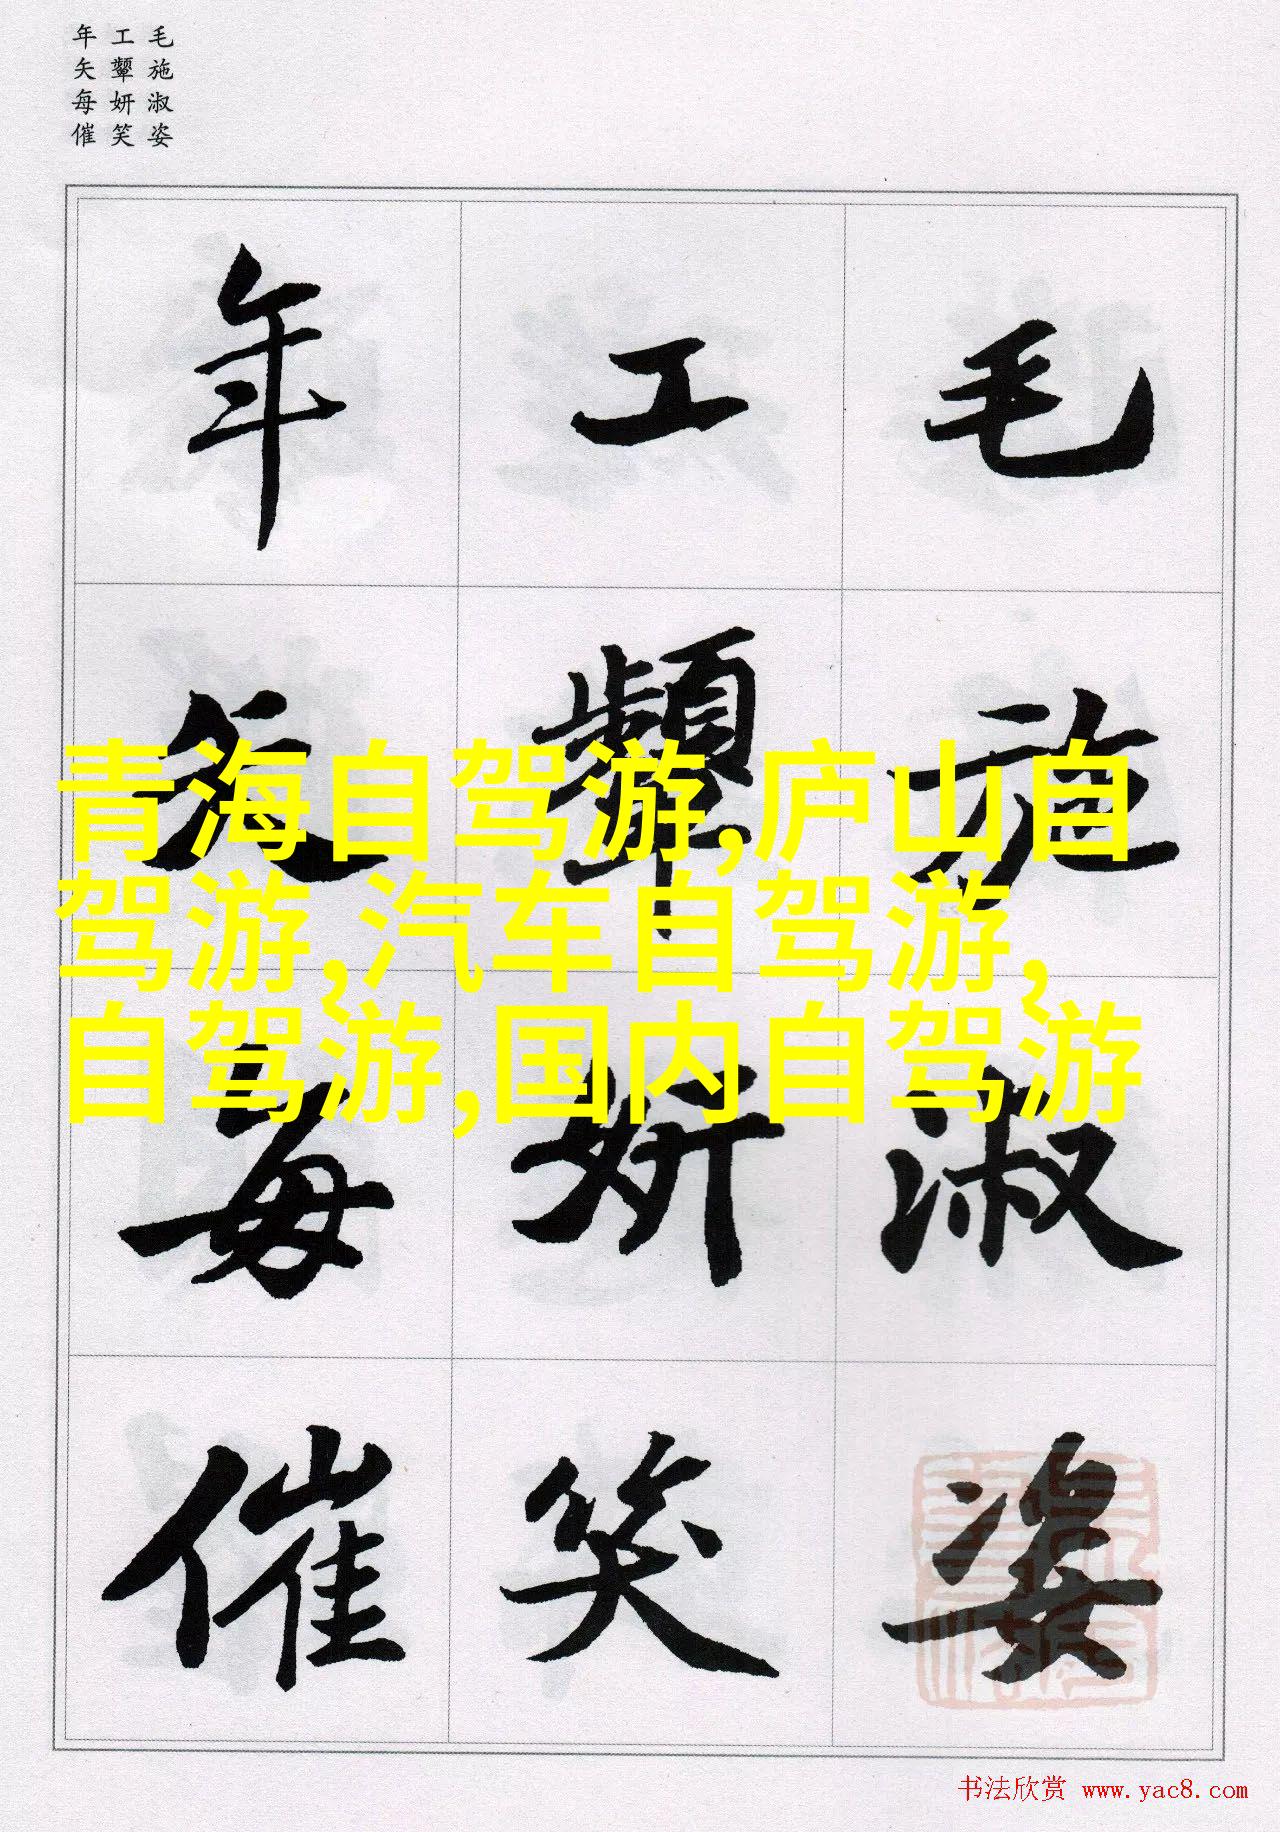 毛施淑姿
工颦妍笑
年矢每催
毛施淑姿
工颦妍笑
年矢每催
青海自驾游,庐山自
驾游,汽车自驾游,
自驾游,国内自驾游
书法欣赏 www.yac8.com